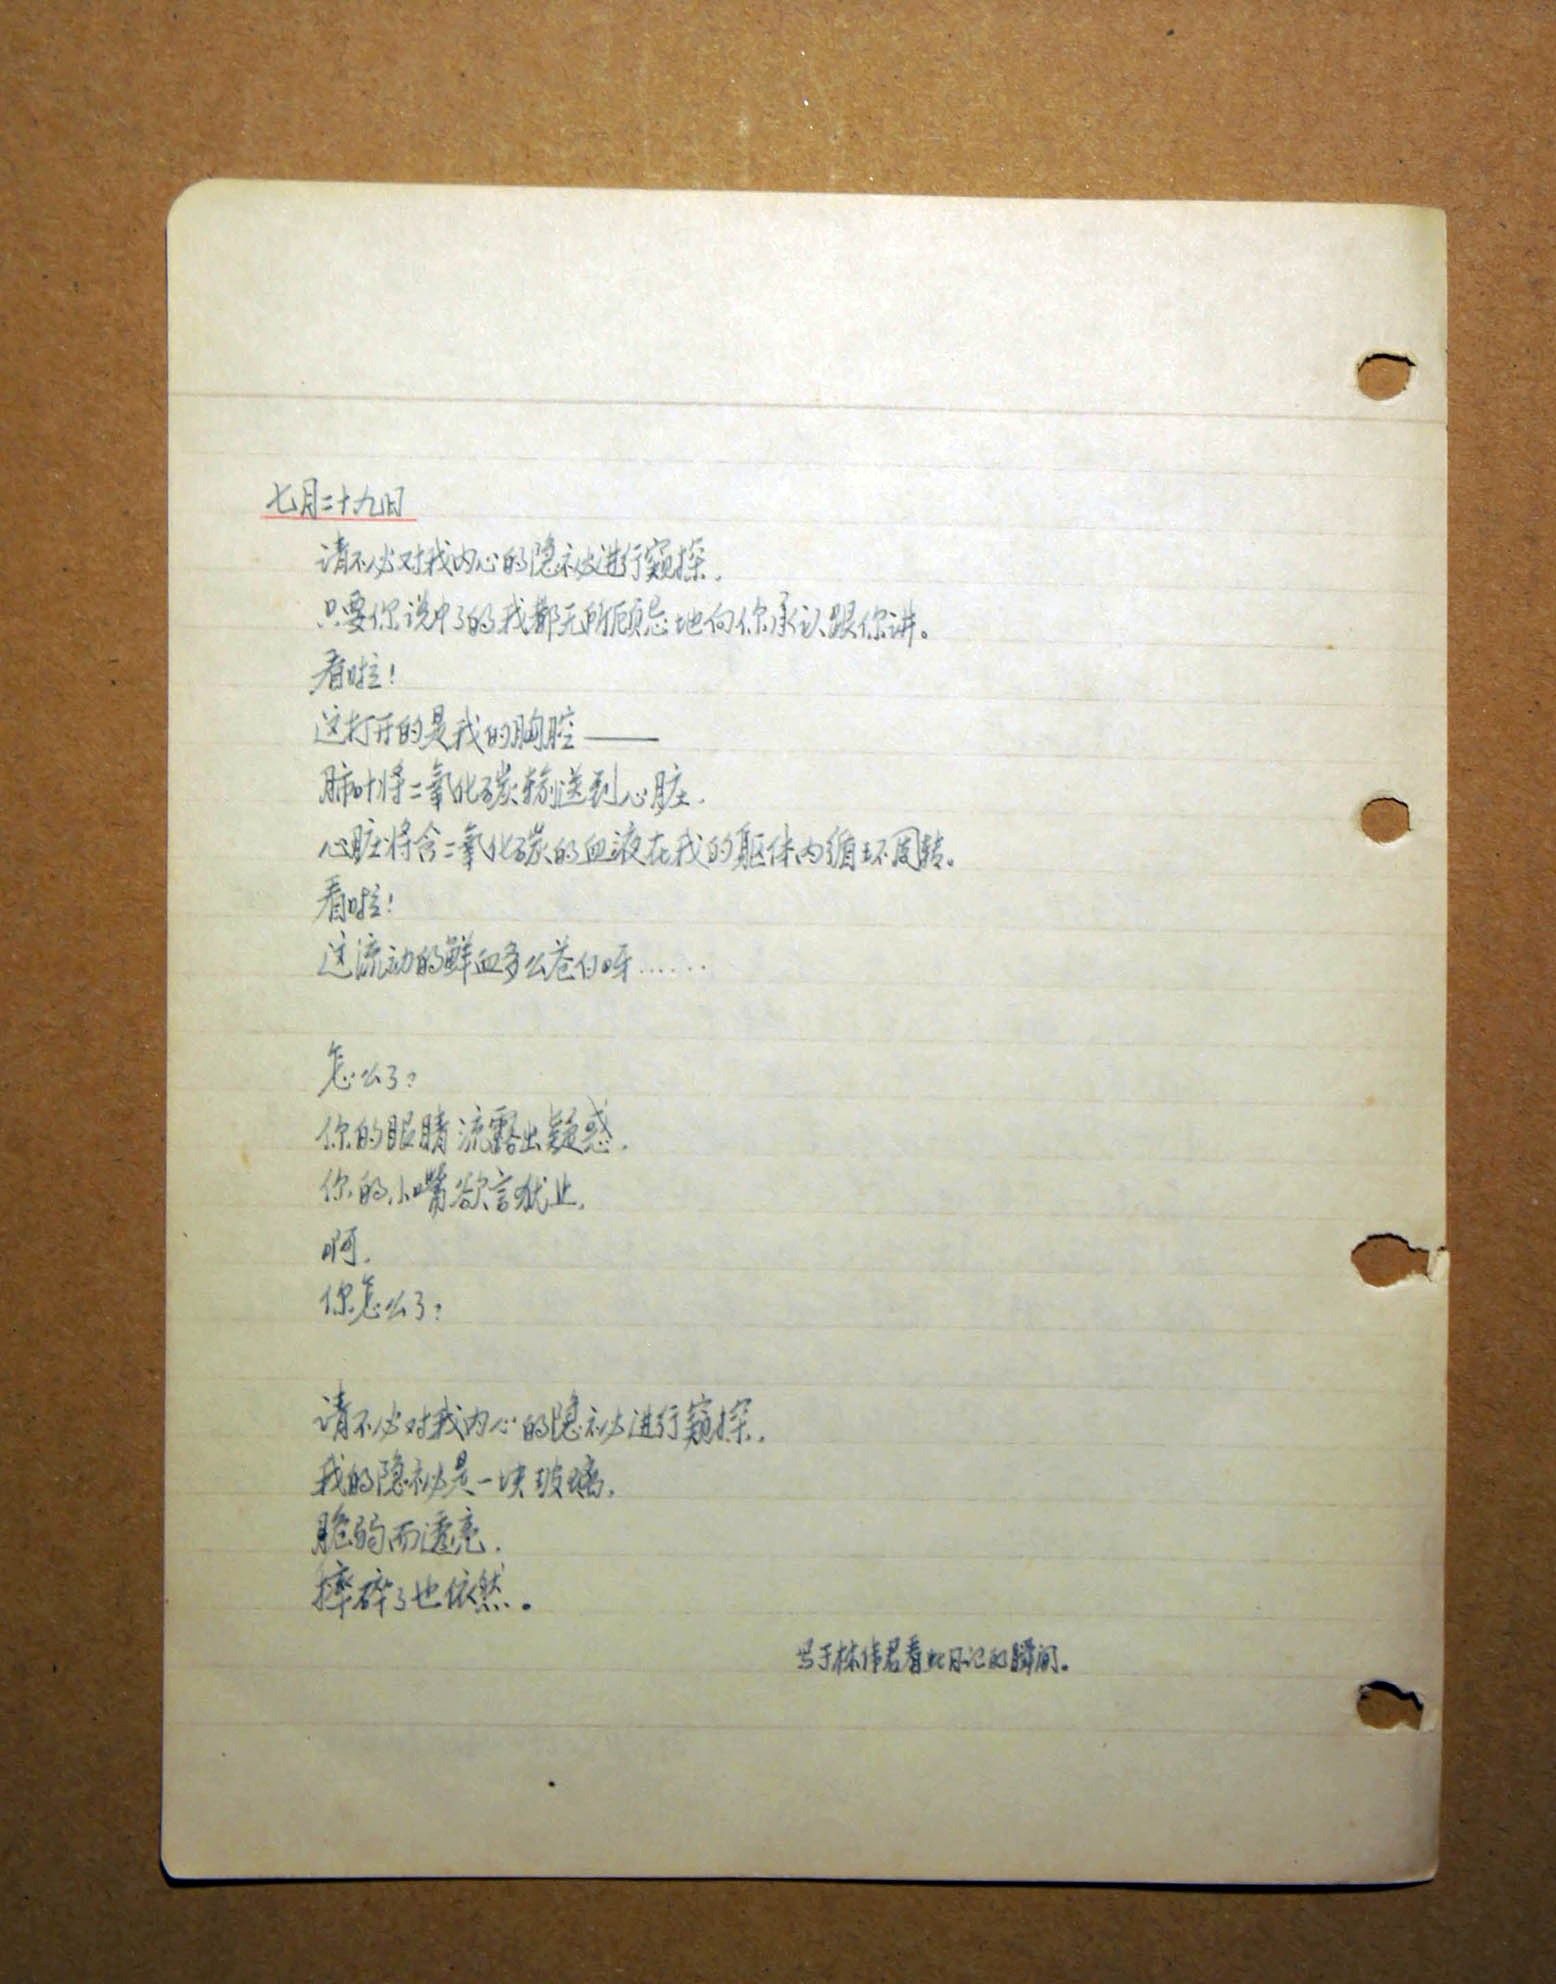 七月二十九日
请不必对我内心的隐秘进行窥探,
只要你说中了的我都无所顾忌地向你承认跟你讲。
看啦!
这打开的是我的胸腔——
肺叶将二氧化碳输送到心脏,
心脏将含二氧化碳的血液在我的躯体内循环周转。
看啦!
这流动的鲜血多么苍白呀……
怎么了?
你的眼睛流露出疑惑,
你的小嘴欲言犹止,
啊,
你怎么了?
请不必对我内心的隐秘进行窥探,
我的隐秘是一块玻璃,
脆弱而透亮,
摔碎了也依然。
写于林伟君看此日记的瞬间。